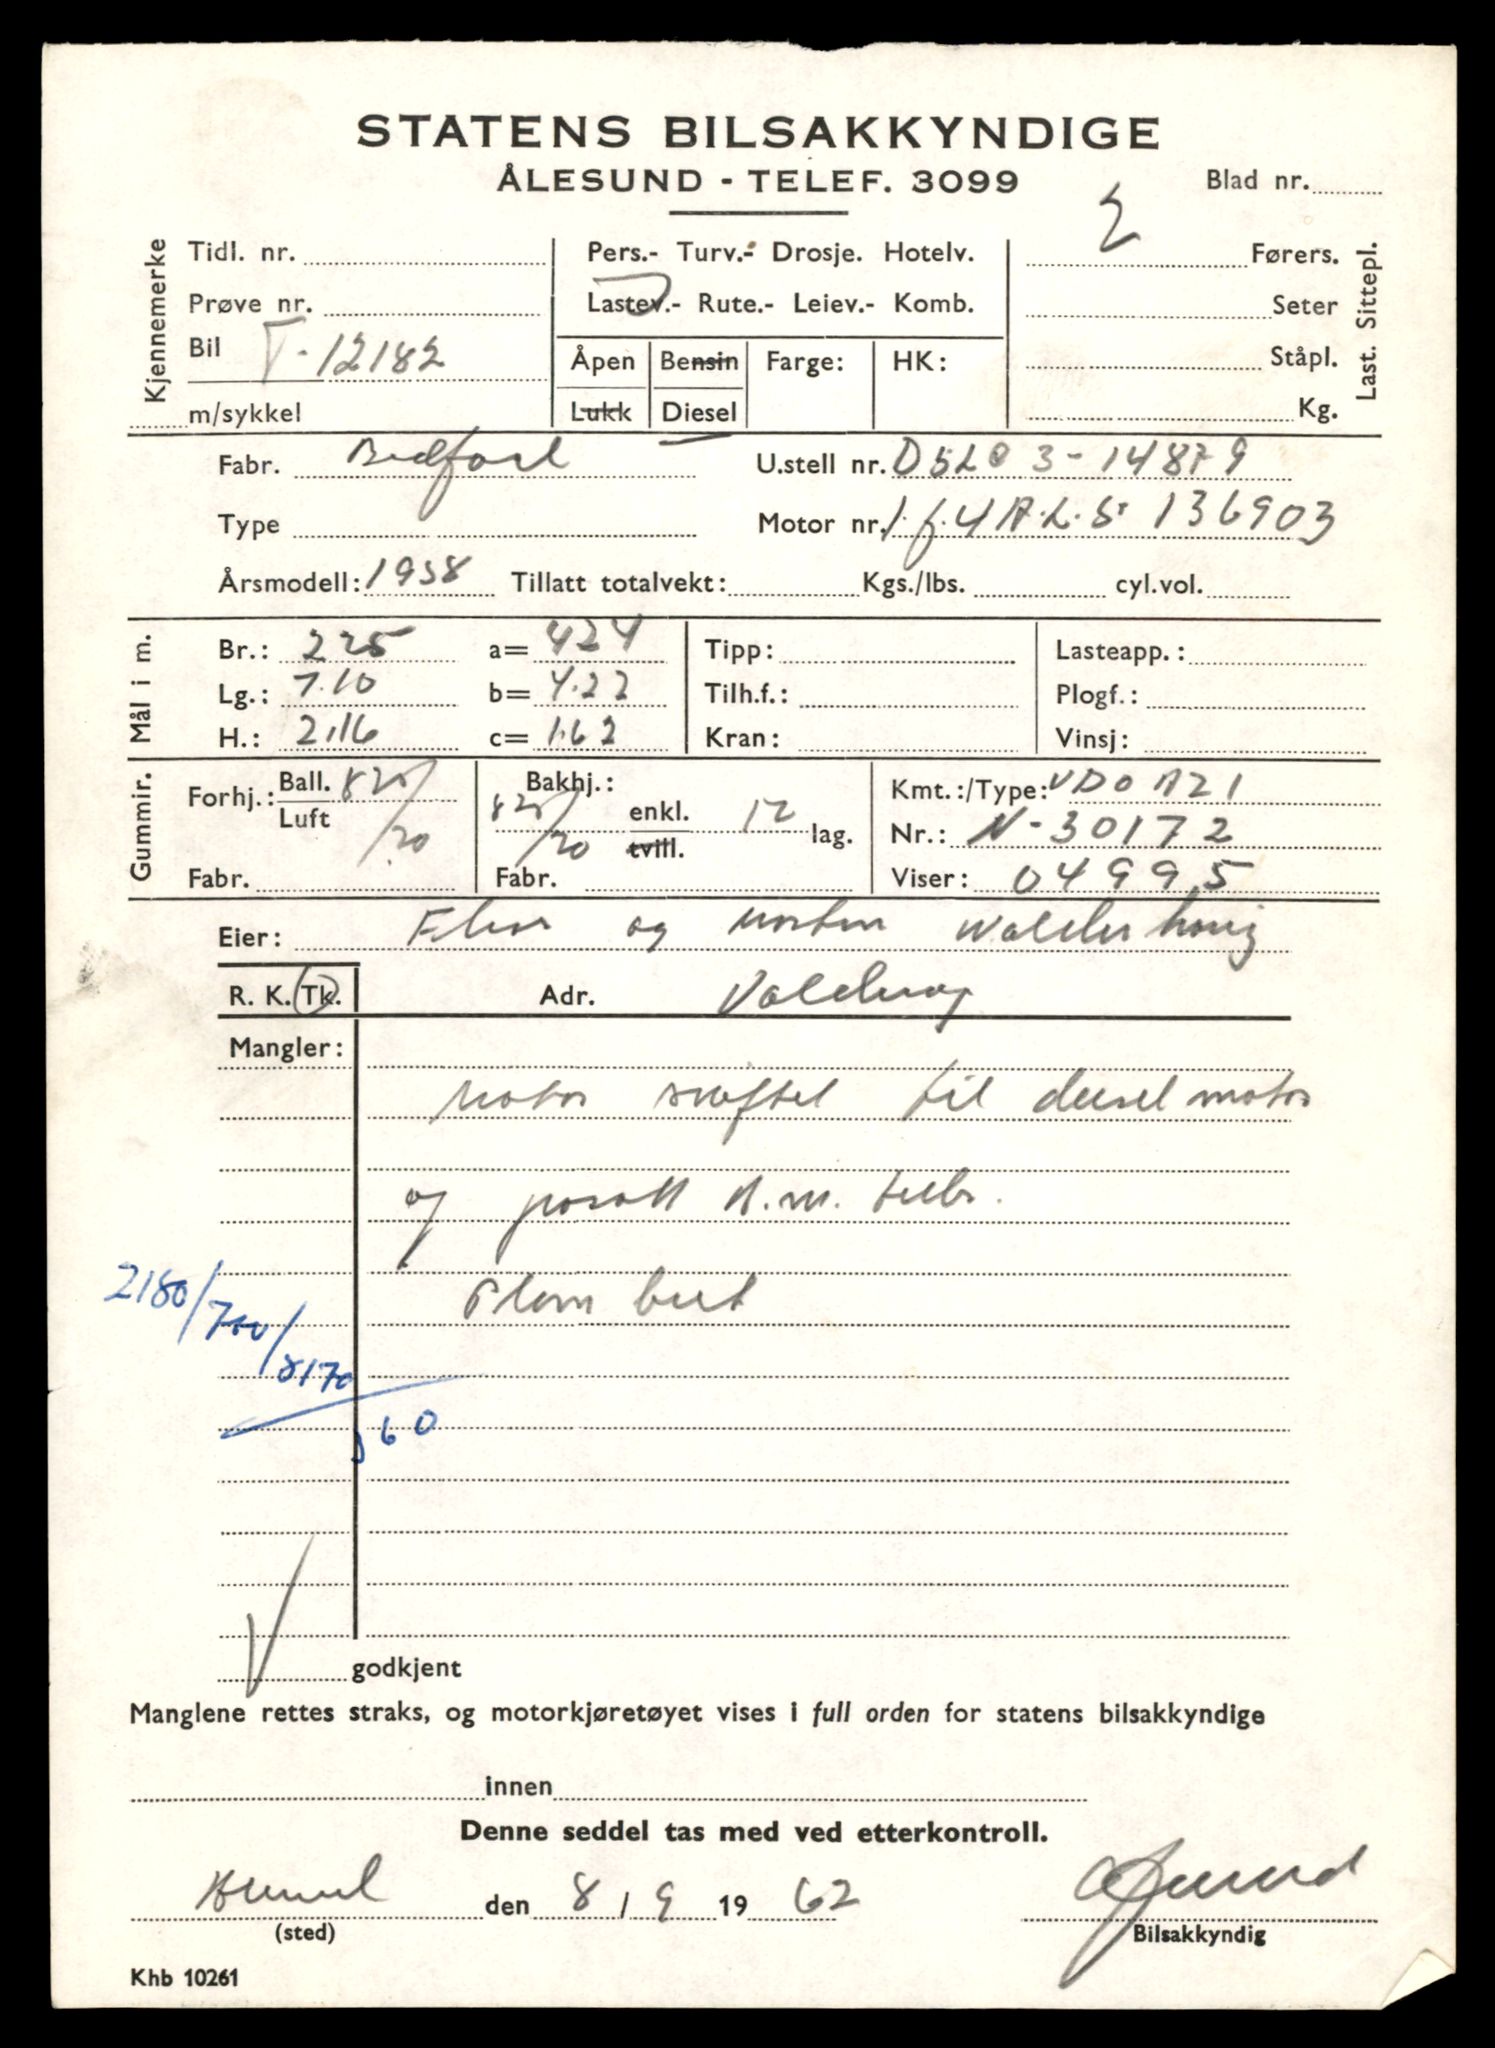 STATENS BILSAKKYNDIGE
ÅLESUND - TELEF. 3099
Blad nr.
Kjennemerke
Tidl. nr.
Prøve nr.
Bil T-12182
m/sykkel
Pers.- Turv.- Drosje. Hotelv.
Lastev.- Rute.- Leiev.- Komb.
Åpen Bensin Farge: HK:
Lukk Diesel
2 Førers.
Seter
Ståpl.
Kg.
Last. Sittepl.
Fabr. Bedford U.stell nr. D5LC3-14879
Type Motor nr. 136903
Årsmodell: 1958 Tillatt totalvekt: Kgs./lbs. cyl.vol.
Mål i m.
Br.: 225 a= 424 Tipp: Lasteapp.:
Lg.: 7.10 b= 4.22 Tilh.f.: Plogf.:
H.: 2.16 c= 1.62 Kran: Vinsj:
Gummir.
Forhj.: Ball. Luft 825/20
Fabr.
Bakhj.: 825/20 enkl. tvill. 12 lag.
Fabr.
Kmt.:/Type: VDO A21
Nr.: N-30172
Viser: 04995
Eier: og Morten Walderhaug
R. K. Tk. Adr. Valderøy
Mangler:
Motor skiftet til diesel motor
og påsatt k.m. teller.
Plombert
2180/700/8170
60
godkjent
Manglene rettes straks, og motorkjøretøyet vises i full orden for statens bilsakkyndige
innen
Denne seddel tas med ved etterkontroll.
den 8/9 1962
(sted)
Bilsakkyndig
Khb 10261